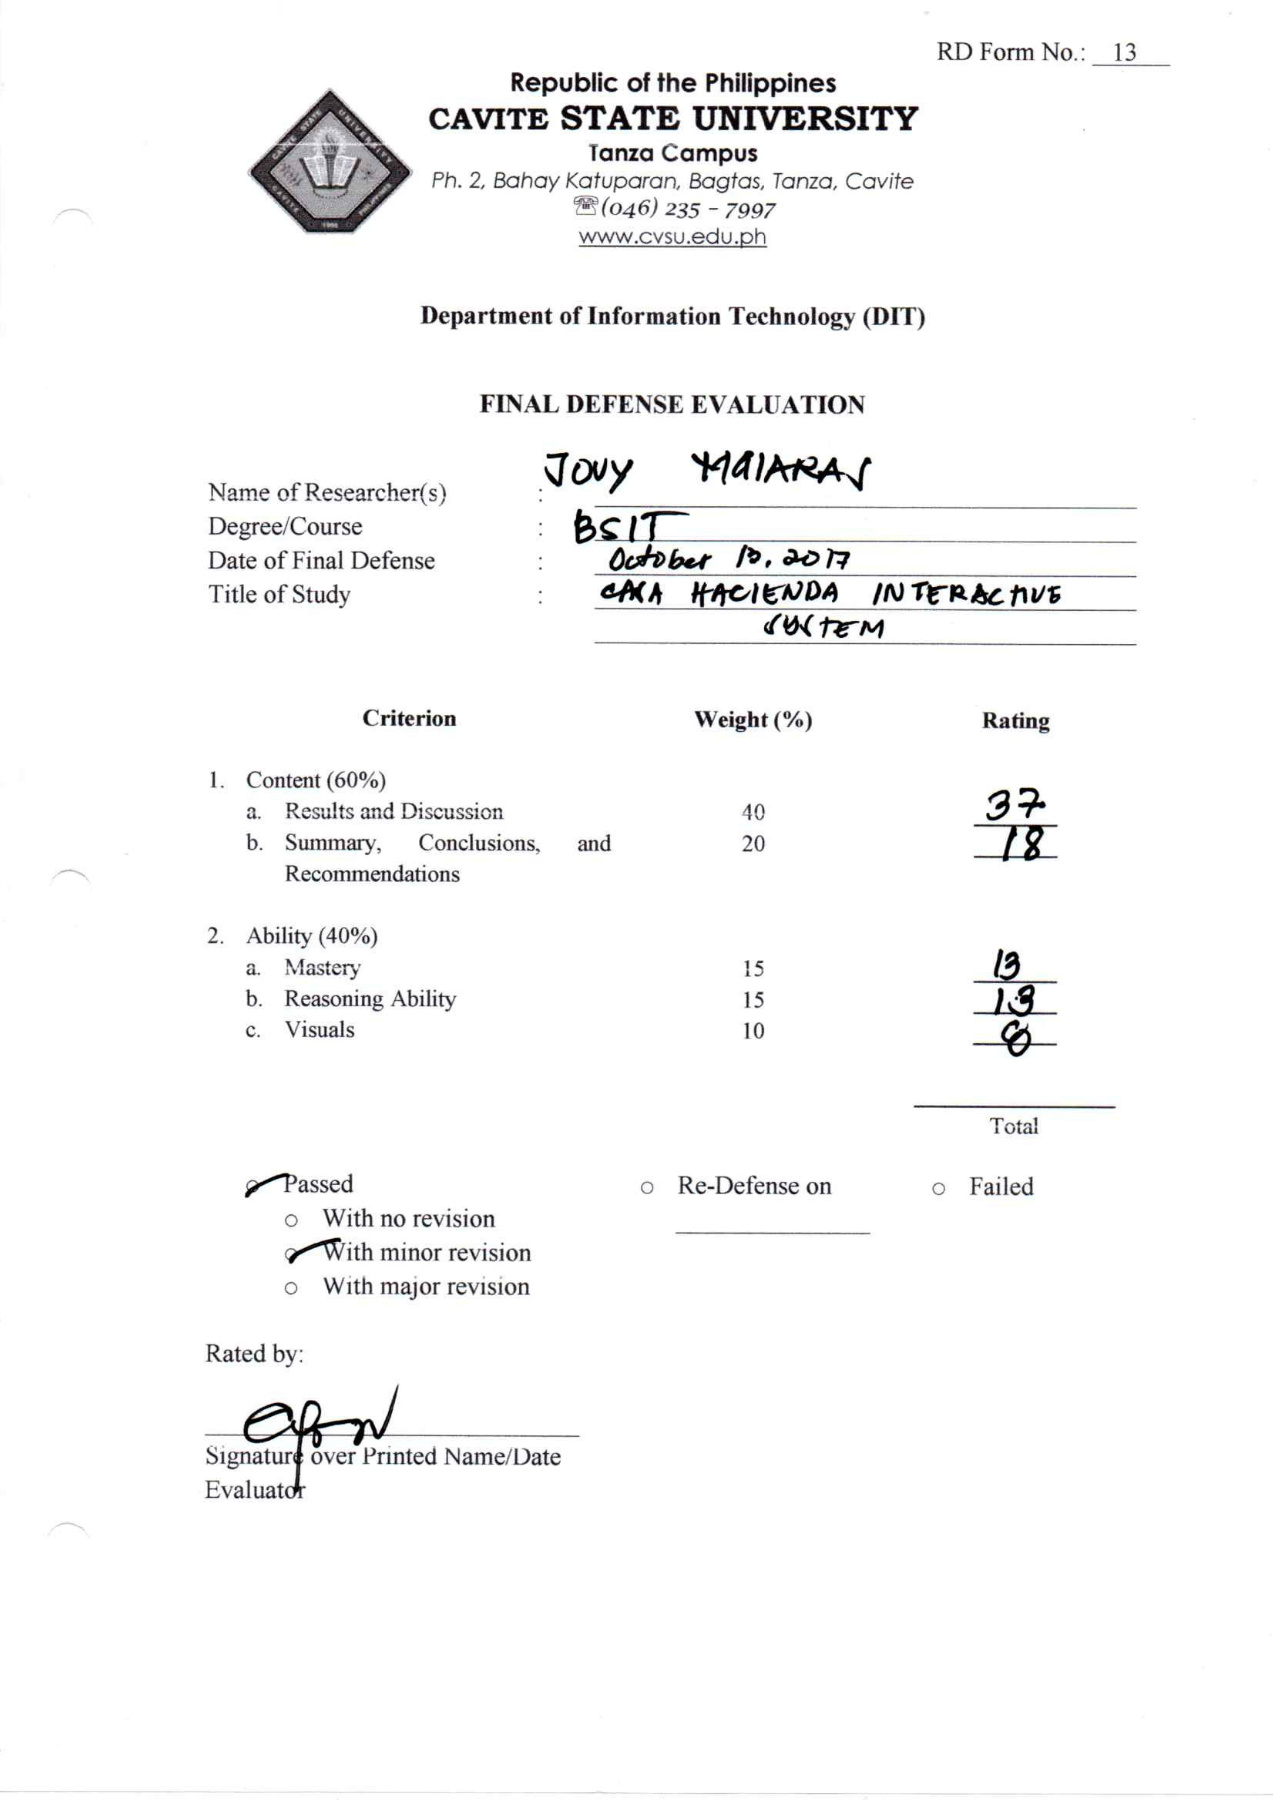 RD Form No.: 13
Republic of the Philippines
CAVITE STATE UNIVERSITY
Tanza Campus
Ph. 2, Bahay Katuparan, Bagtas, Tanza, Cavite
☎(046) 235 – 7997
www.cvsu.edu.ph
CAVITE STATE UNIVERSITY
CAVITE PHILIPPINES
Department of Information Technology (DIT)
FINAL DEFENSE EVALUATION
Name of Researcher(s) : JOVY
Degree/Course : BSIT
Date of Final Defense : October 13, 2017
Title of Study : CASA HACIENDA INTERACTIVE
SYSTEM
Criterion Weight (%) Rating
1. Content (60%)
a. Results and Discussion 40 37
b. Summary, Conclusions, and 20 18
Recommendations
2. Ability (40%)
a. Mastery 15 13
b. Reasoning Ability 15 13
c. Visuals 10 8
Total
Passed ○ Re-Defense on ○ Failed
○ With no revision
With minor revision
○ With major revision
Rated by:
Signature over Printed Name/Date
Evaluator